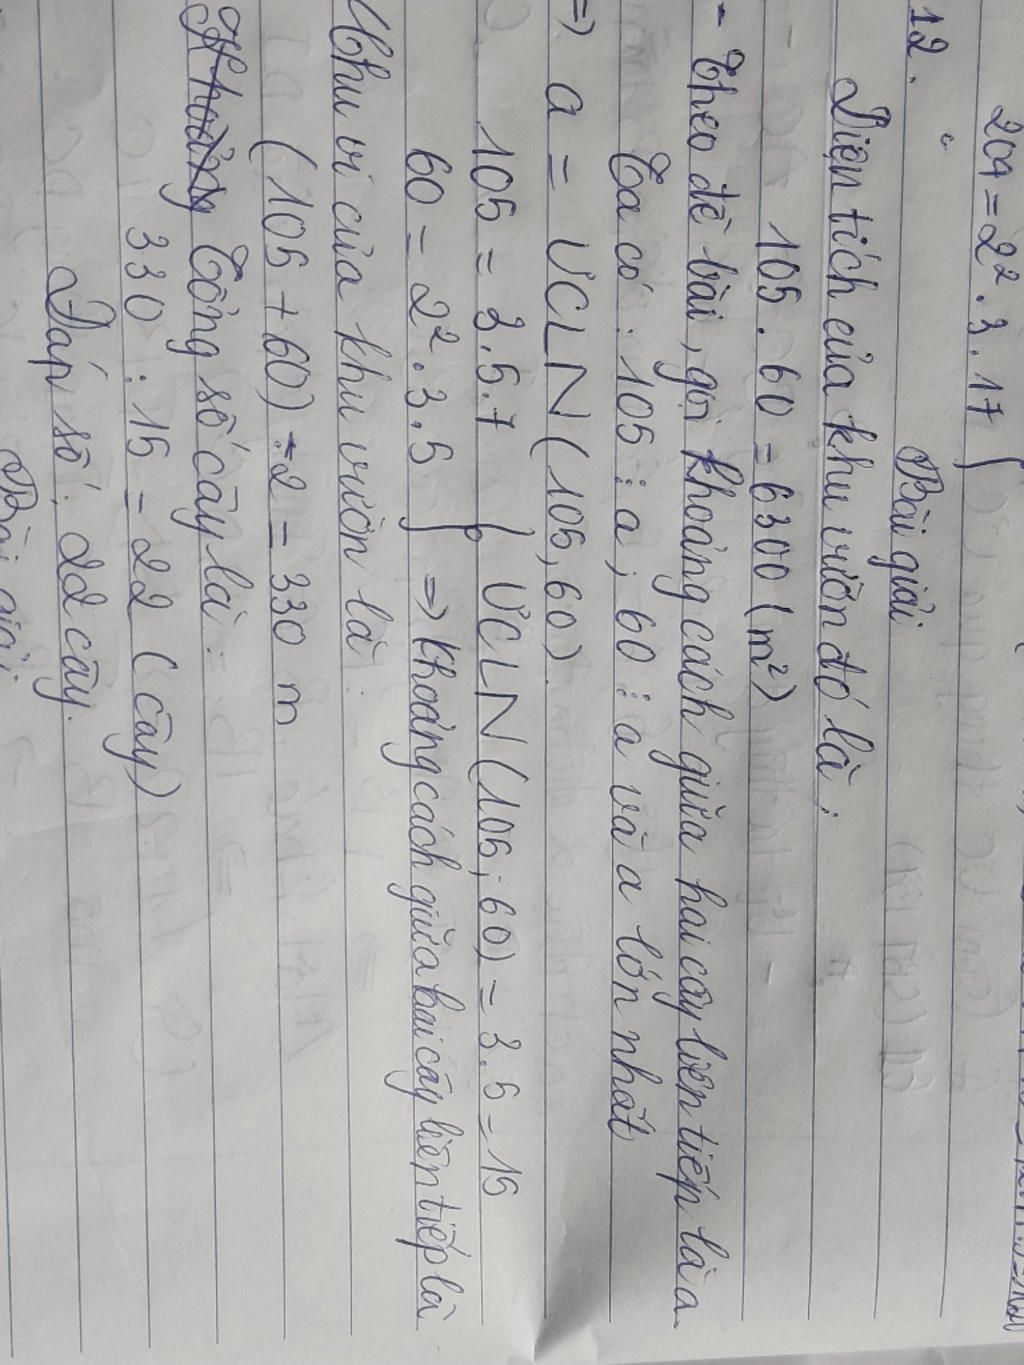 204 = 2². 3. 17 {
12.
Bài giải
Diện tích của khu vườn đó là:
105. 60 = 6300 (m²)
- Theo đề bài, gọi khoảng cách giữa hai cây liên tiếp là a
Ta có: 105 ⋮ a; 60 ⋮ a và a lớn nhất
=> a = ƯCLN (105, 60).
105 = 3.5.7 } ƯCLN (105; 60) = 3.5 = 15
60 = 2². 3. 5 => Khoảng cách giữa hai cây liên tiếp là
Chu vi của khu vườn là:
(105 + 60) . 2 = 330 m
Tổng số cây là:
330 : 15 = 22 (cây)
Đáp số: 22 cây.
Bài giải